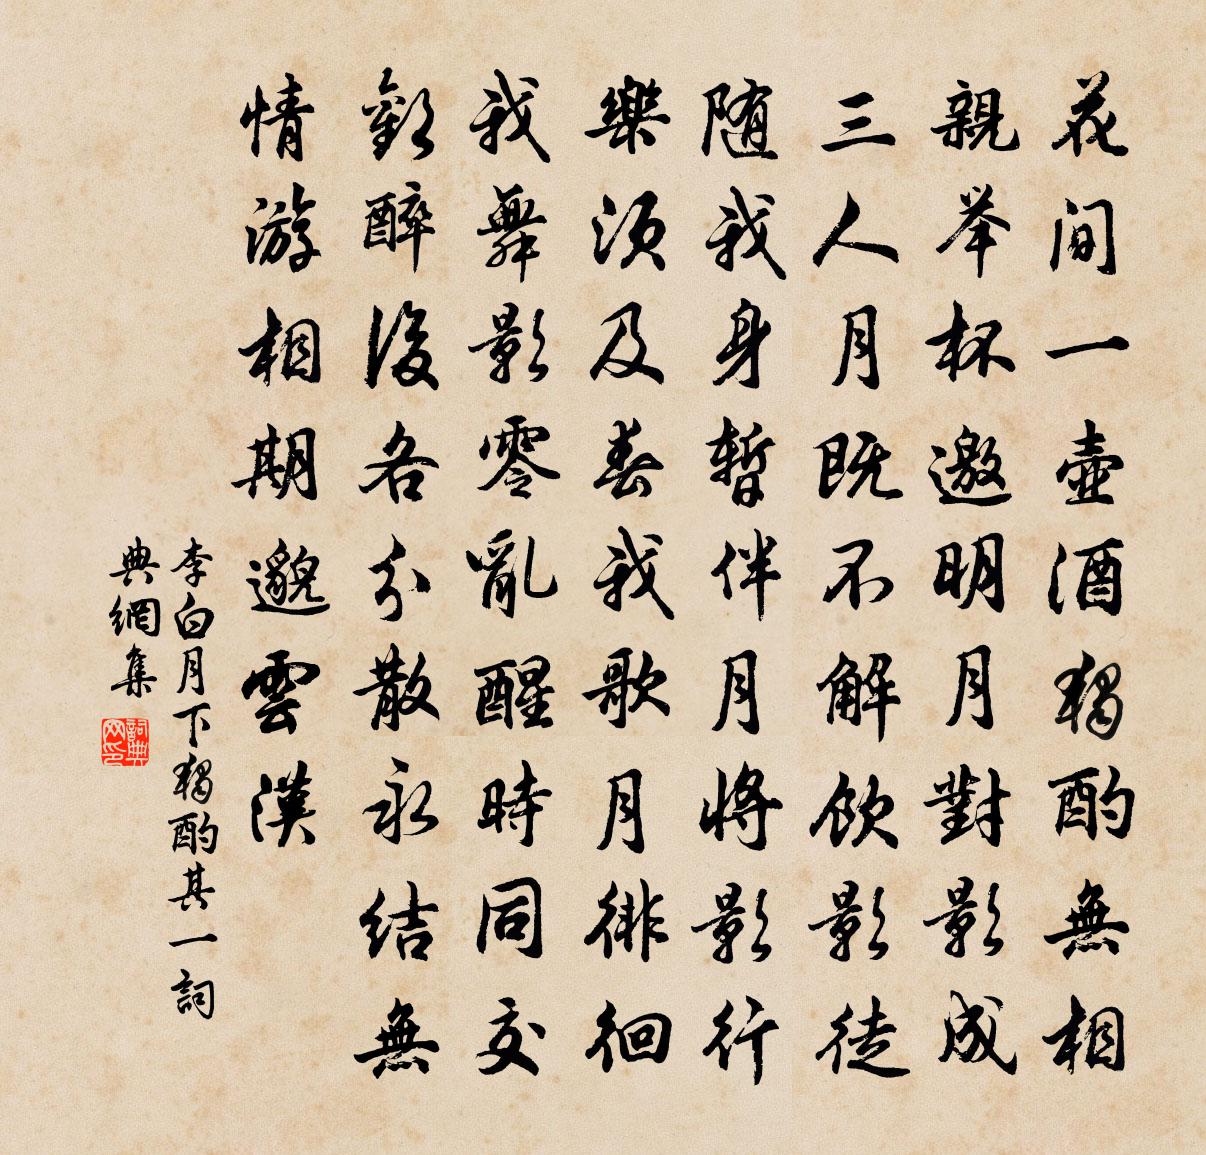 花间一壺酒獨酌無相
親举杯邀明月對影成
三人月既不解飲影徒
随我身暂伴月将影行
樂須及春我歌月徘徊
我舞影零亂醒時同交
歡醉後各分散永結無
情游相期邈雲漢
李白月下獨酌其一詞
典網集
詞典
网印